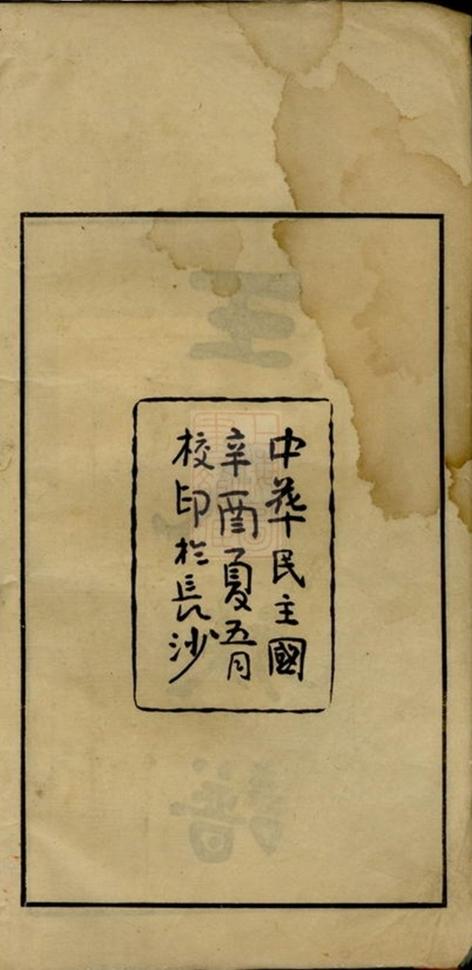 中華民主國
辛酉夏五月
校印於長沙